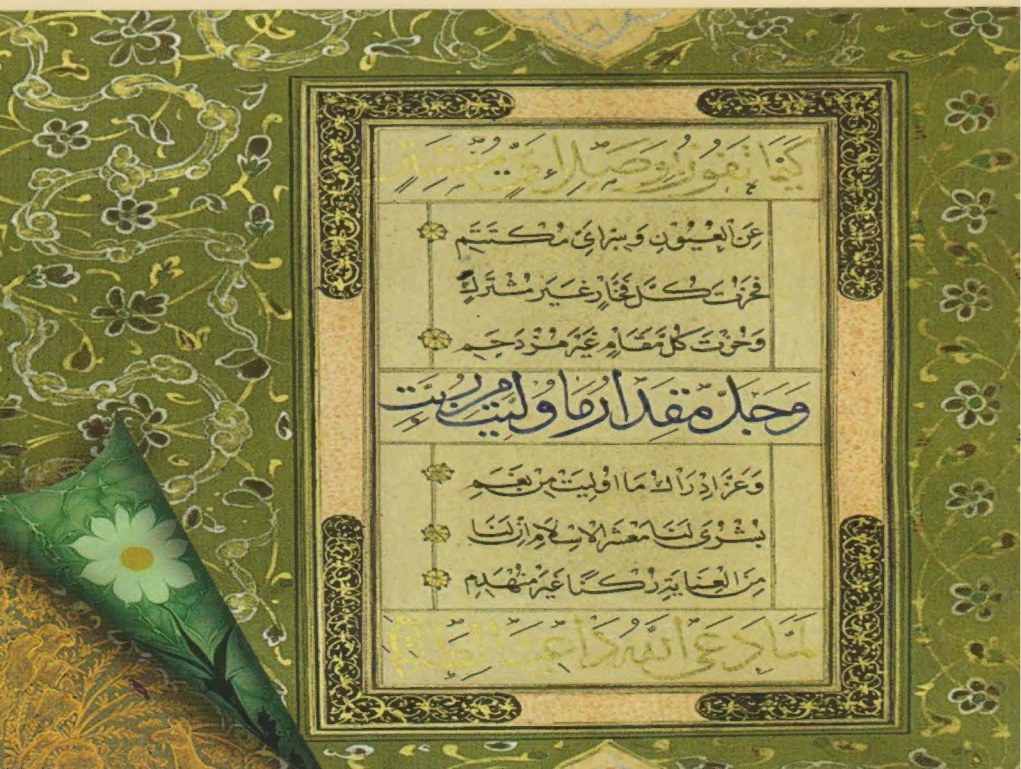 كَيْمَا تَفُوزَ بِوَصْلٍ أَيِّ مُسْتَتِرٍ
عَنِ الْعُيُونِ وَسِرٍّ أَيِّ مُكْتَتَمِ
فَحُزْتَ كُلَّ فَخَارٍ غَيْرَ مُشْتَرَكٍ
وَجُزْتَ كُلَّ مَقَامٍ غَيْرَ مُزْدَحَمِ
وَجَلَّ مِقْدَارُ مَا وُلِّيتَ مِنْ رُتَبٍ
وَعَزَّ اِدْرَاكُ مَا اُولِيتَ مِنْ نِعَمِ
بُشْرَى لَنَا مَعْشَرَ الْاِسْلَامِ اِنَّ لَنَا
مِنَ الْعِنَايَةِ رُكْنًا غَيْرَ مُنْهَدِمِ
لَمَّا دَعَى اللهُ دَاعِينَا لِطَاعَتِهِ